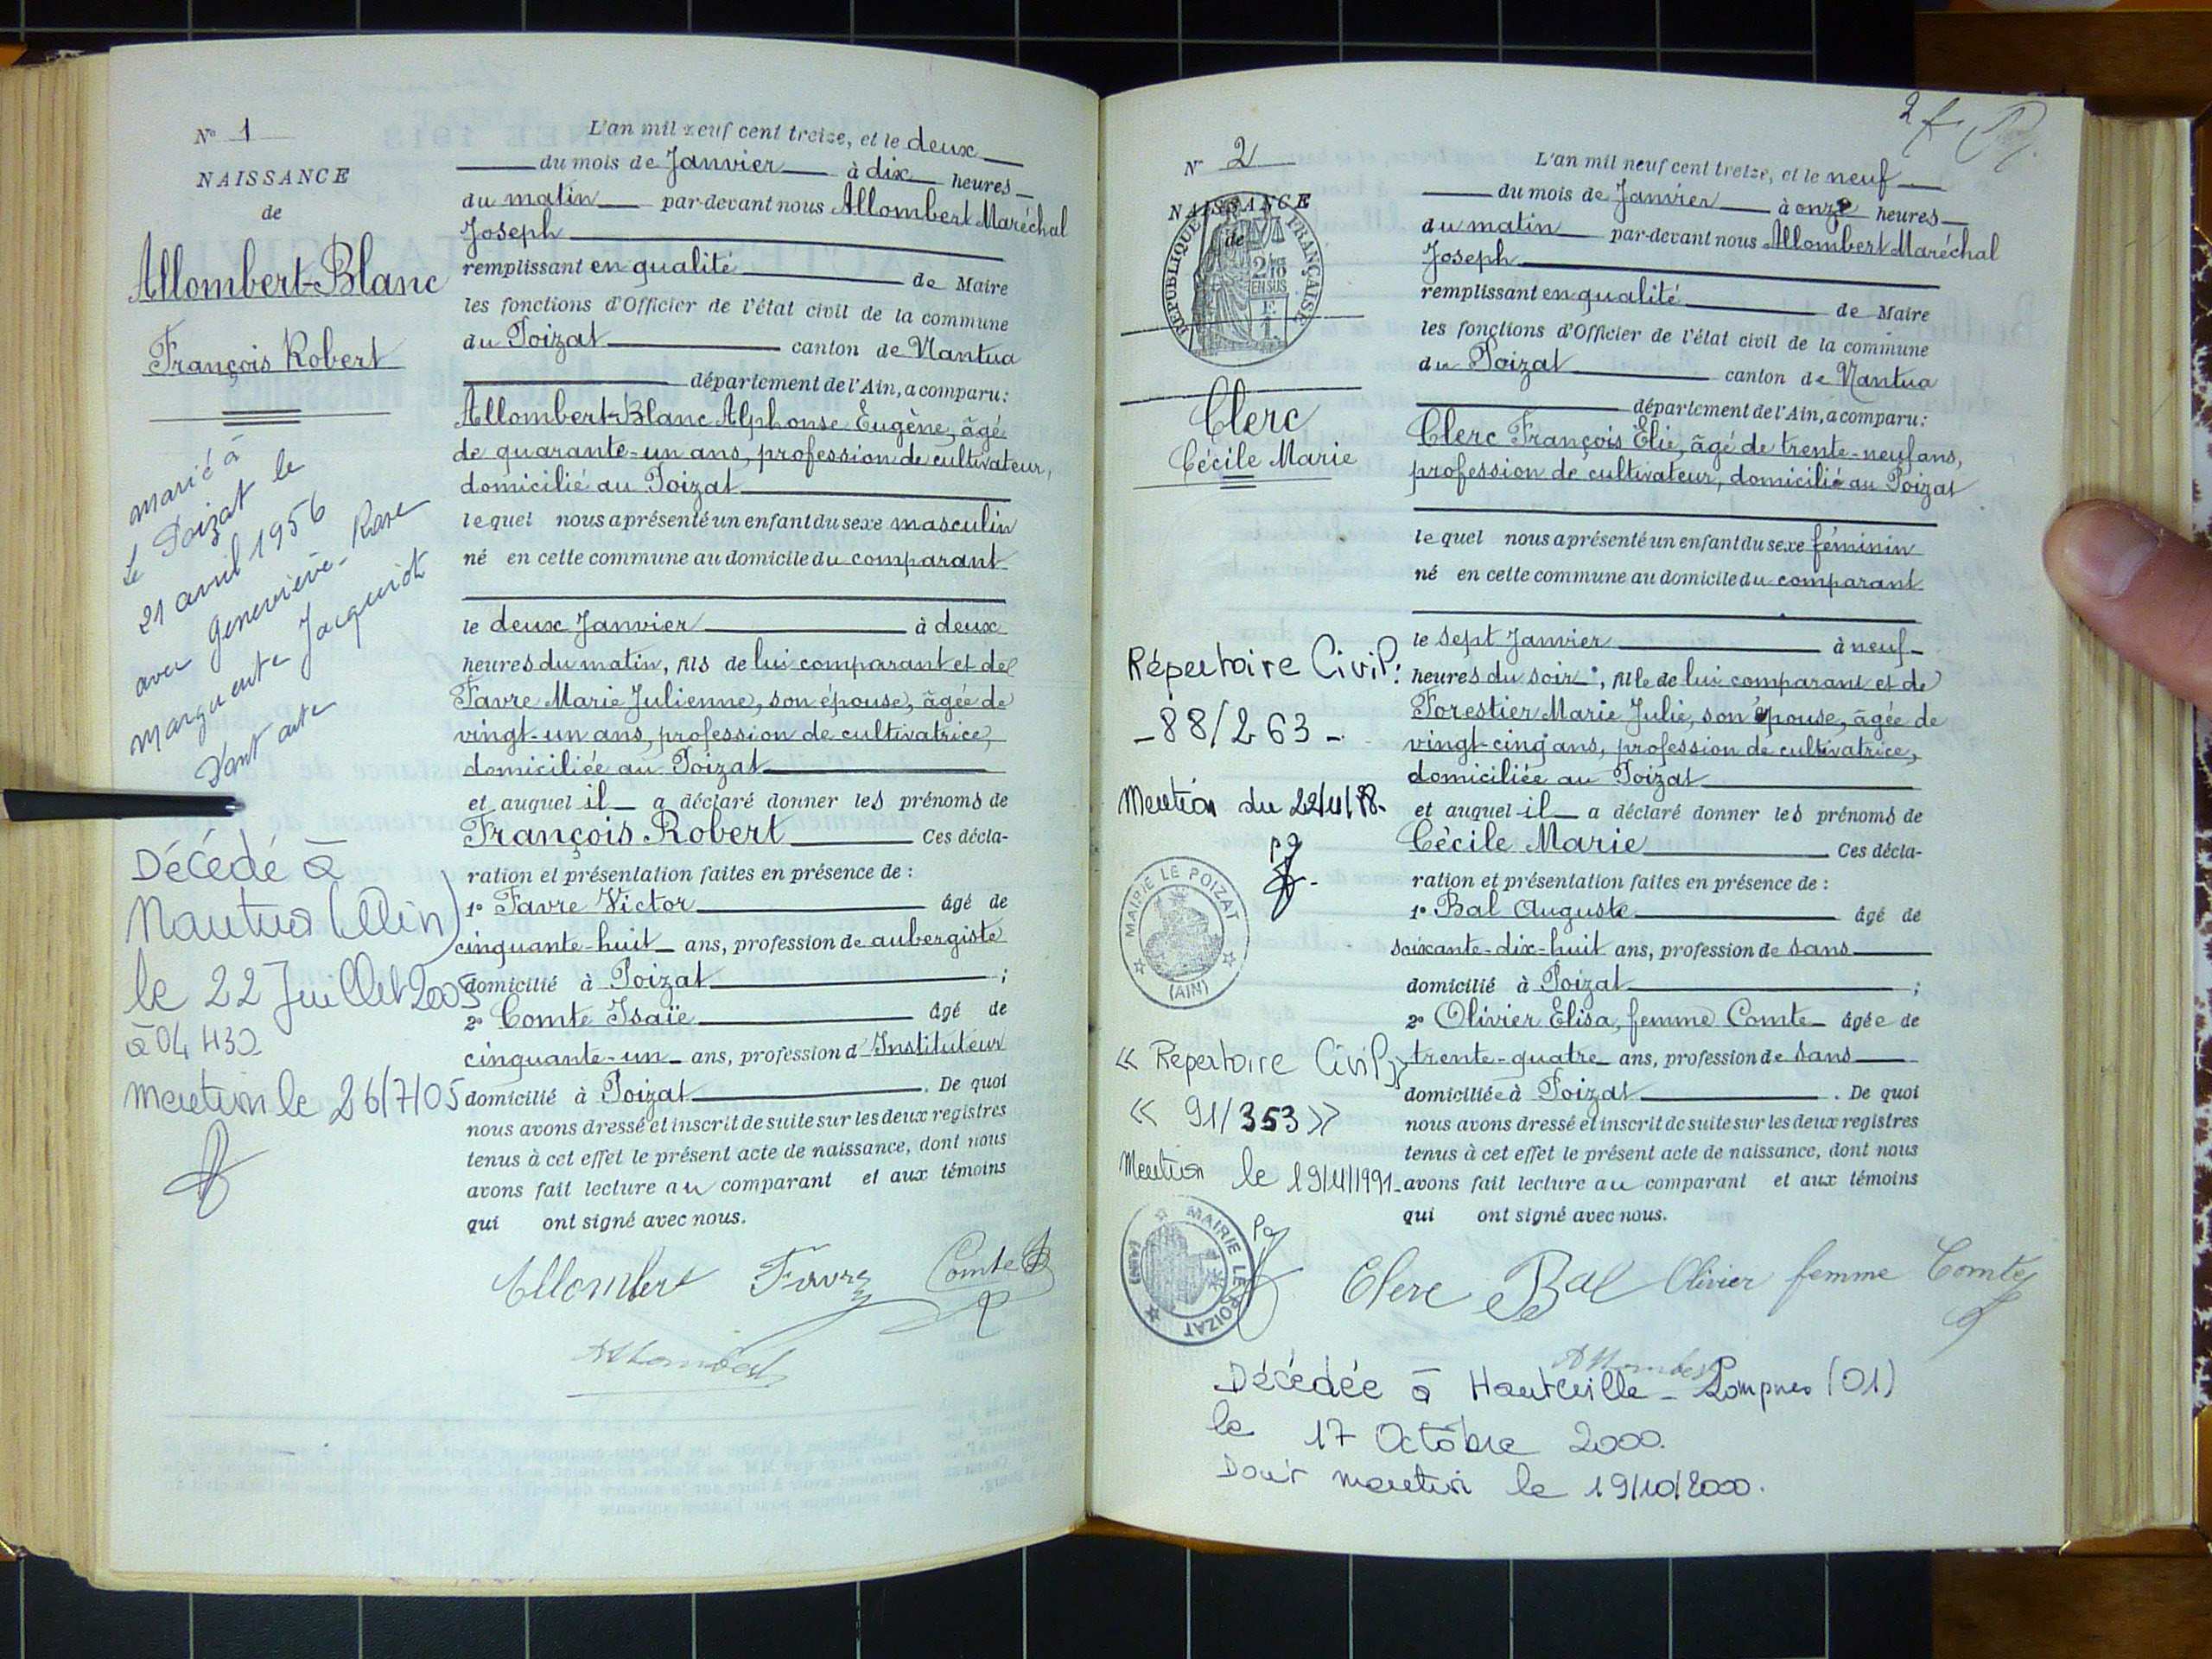 N° 1
NAISSANCE
de
Allombert-Blanc
François Robert
marié à
Le Poizat le
21 avril 1956
avec Geneviève-Rose
Marguerite Jacquiot
Dont acte
Décédé à
Nantua (Ain)
le 22 Juillet 2005
à 04 H30
mention le 26/7/05
L'an mil neuf cent treize, et le deux
du mois de Janvier à dix heures
du matin par-devant nous Allombert Maréchal
Joseph
remplissant en qualité de Maire
les fonctions d'Officier de l'état civil de la commune
du Poizat canton de Nantua
département de l'Ain, a comparu :
Allombert-Blanc Alphonse Eugène, âgé
de quarante-un ans, profession de cultivateur,
domicilié au Poizat
lequel nous a présenté un enfant du sexe masculin
né en cette commune au domicile du comparant
le deux Janvier à deux
heures du matin, fils de lui comparant et de
Favre Marie Julienne, son épouse, âgée de
vingt-un ans, profession de cultivatrice,
domiciliée au Poizat
et auquel il a déclaré donner les prénoms de
François Robert Ces décla-
ration et présentation faites en présence de :
1° Favre Victor âgé de
cinquante-huit ans, profession de aubergiste
domicilié à Poizat ;
2° Comte Isaïe âgé de
cinquante-un ans, profession d'Instituteur
domicilié à Poizat . De quoi
nous avons dressé et inscrit de suite sur les deux registres
tenus à cet effet le présent acte de naissance, dont nous
avons fait lecture au comparant et aux témoins
qui ont signé avec nous.
Allombert Favre Comte
Allombert
2
N° 2
NAISSANCE
de
RÉPUBLIQUE FRANÇAISE
2/10
EN SUS
Clerc
Cécile Marie
Répertoire Civil :
- 88/263 -
Mention du 22/4/88.
MAIRIE LE POIZAT
(AIN)
« Repertoire Civil »
« 91/353 »
Mention le 19/4/1991
MAIRIE LE POIZAT
(AIN)
L'an mil neuf cent treize, et le neuf
du mois de Janvier à onze heures
du matin par-devant nous Allombert Maréchal
Joseph
remplissant en qualité de Maire
les fonctions d'Officier de l'état civil de la commune
du Poizat canton de Nantua
département de l'Ain, a comparu :
Clerc François Elie, âgé de trente-neuf ans,
profession de cultivateur, domicilié au Poizat
lequel nous a présenté un enfant du sexe féminin
né en cette commune au domicile du comparant
le sept Janvier à neuf
heures du soir, fille de lui comparant et de
Forestier Marie Julie, son épouse, âgée de
vingt-cinq ans, profession de cultivatrice,
domiciliée au Poizat
et auquel il a déclaré donner les prénoms de
Cécile Marie Ces décla-
ration et présentation faites en présence de :
1° Bal Auguste âgé de
soixante-dix-huit ans, profession de sans
domicilié à Poizat ;
2° Olivier Elisa, femme Comte âgée de
trente-quatre ans, profession de sans
domiciliée à Poizat . De quoi
nous avons dressé et inscrit de suite sur les deux registres
tenus à cet effet le présent acte de naissance, dont nous
avons fait lecture au comparant et aux témoins
qui ont signé avec nous.
Clerc Bal Olivier femme Comte
Allombert
Décédée à Hauteville-Lompnes (01)
le 17 Octobre 2000.
Dont mention le 19/10/2000.